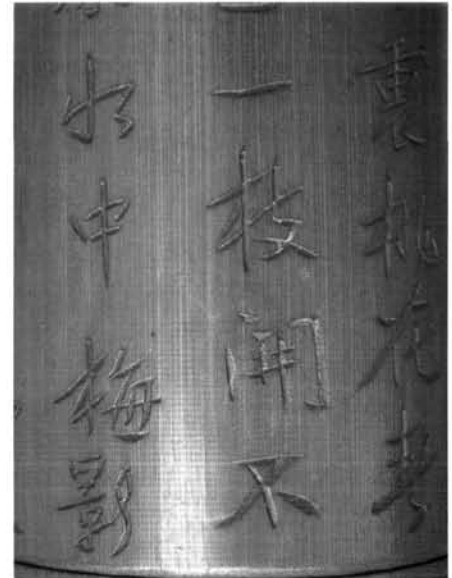 裏桃花
一枝開不
水中梅影